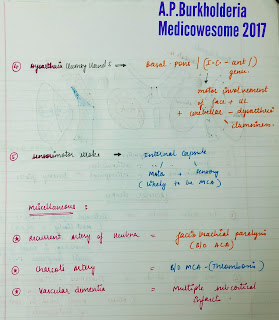 A.P.Burkholderia
Medicowesome 2017
④ Dysarthria clumsy hand s → Basal pons / (I.C - ant /)
genu.
↓
motor involvement
of face + UL
+ cerebellar - dysarthria
clumsiness.
⑤ sensorimotor stroke → Internal capsule
Motor + sensory
(likely to be MCA)
Miscellaneous :
* recurrent artery of Heubner = faciobrachial paralysis
(B/o ACA)
* Charcots artery = B/o MCA - (Thrombosis)
* Vascular dementia = Multiple subcortical
infarcts.